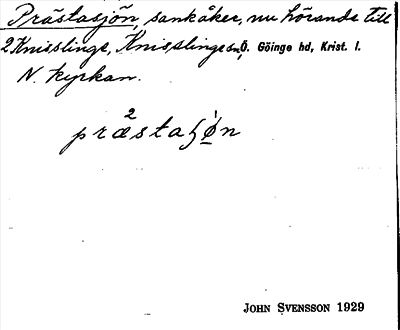 Prästasjön, sankåker, nu hörande till
2 Knisslinge, Knisslinge sn, Ö. Göinge hd, Krist. l.
N. kyrkan.
2
præstaʃø̱n
JOHN SVENSSON 1929